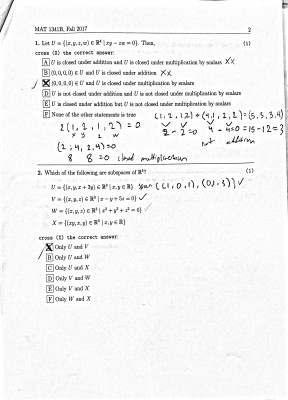 MAT 1341B, Fall 2017 2
1. Let U = {(x, y, z, w) ∈ R⁴ | xy − zw = 0}. Then, (1)
cross (X) the correct answer:
A U is closed under addition and U is closed under multiplication by scalars XX
B (0, 0, 0, 0) ∈ U and U is closed under addition XX
X (0, 0, 0, 0) ∈ U and U is closed under multiplication by scalars
D U is not closed under addition and U is not closed under multiplication by scalars
E U is closed under addition but U is not closed under multiplication by scalars
F None of the other statements is true
2(1, 2, 1, 2) = 0
x y z w
(2, 4, 2, 4) = 0
8 8 = 0 closed multiplication
not addition
2. Which of the following are subspaces of R³? (1)
U = {(x, y, x + 3y) ∈ R³ | x, y ∈ R} span {(1, 0, 1), (0, 1, 3)} ✓
V = {(x, y, z) ∈ R³ | x − y + 5z = 0} ✓
W = {(x, y, z) ∈ R³ | x² + y² + z² = 0} ✓
X = {(xy, x, y) ∈ R³ | x, y ∈ R}
cross (X) the correct answer:
X Only U and V
B Only U and W
C Only U and X
D Only V and W
E Only V and X
F Only W and X